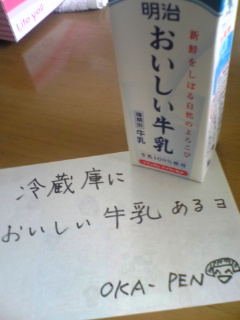 Life
明治
おいしい牛乳
新鮮をしぼる自然のよろこび
種類別 牛乳
生乳100%使用
冷蔵庫に
おいしい牛乳あるヨ
OKA-PEN